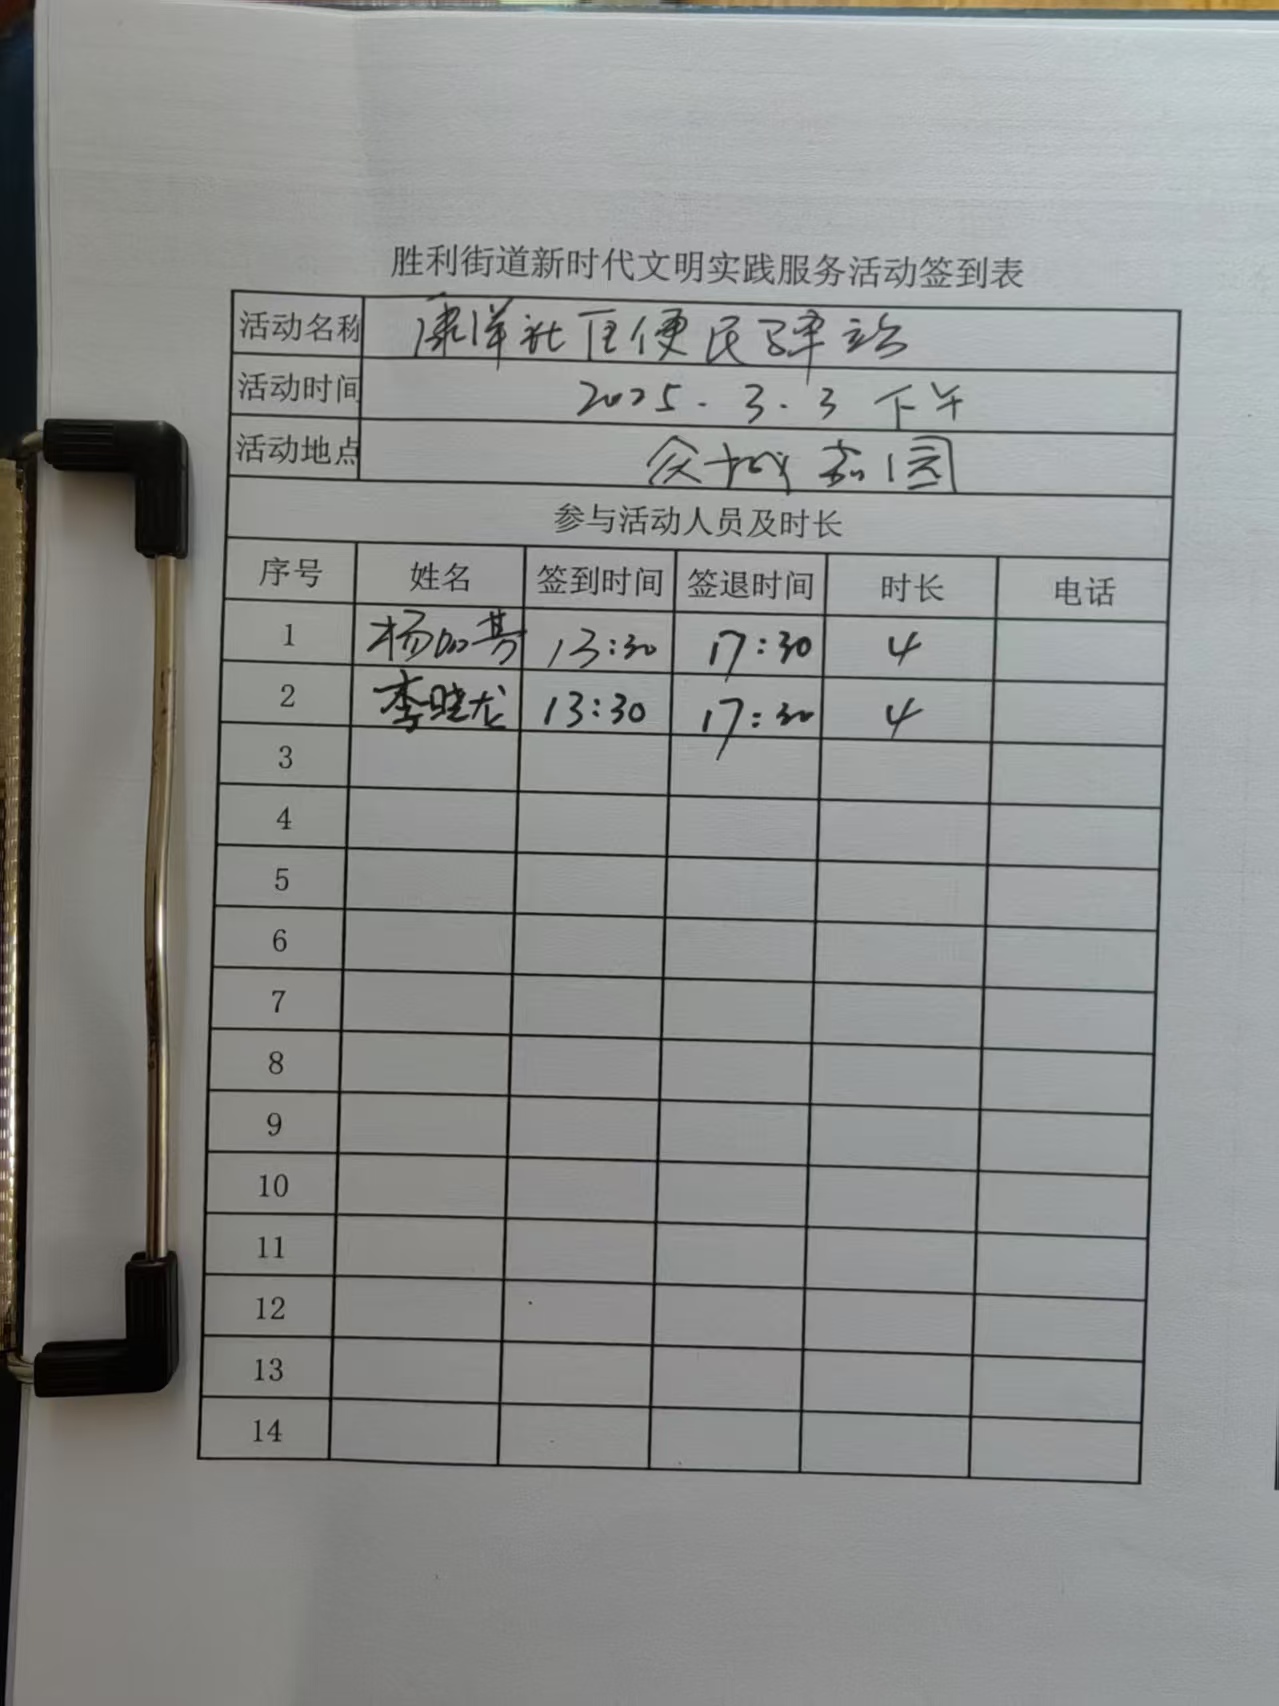 胜利街道新时代文明实践服务活动签到表
活动名称 康洋社区便民驿站
活动时间 2025.3.3 下午
活动地点 众城嘉园
参与活动人员及时长
序号 姓名 签到时间 签退时间 时长 电话
1 杨 13:30 17:30 4
2 李晓龙 13:30 17:30 4
3
4
5
6
7
8
9
10
11
12
13
14